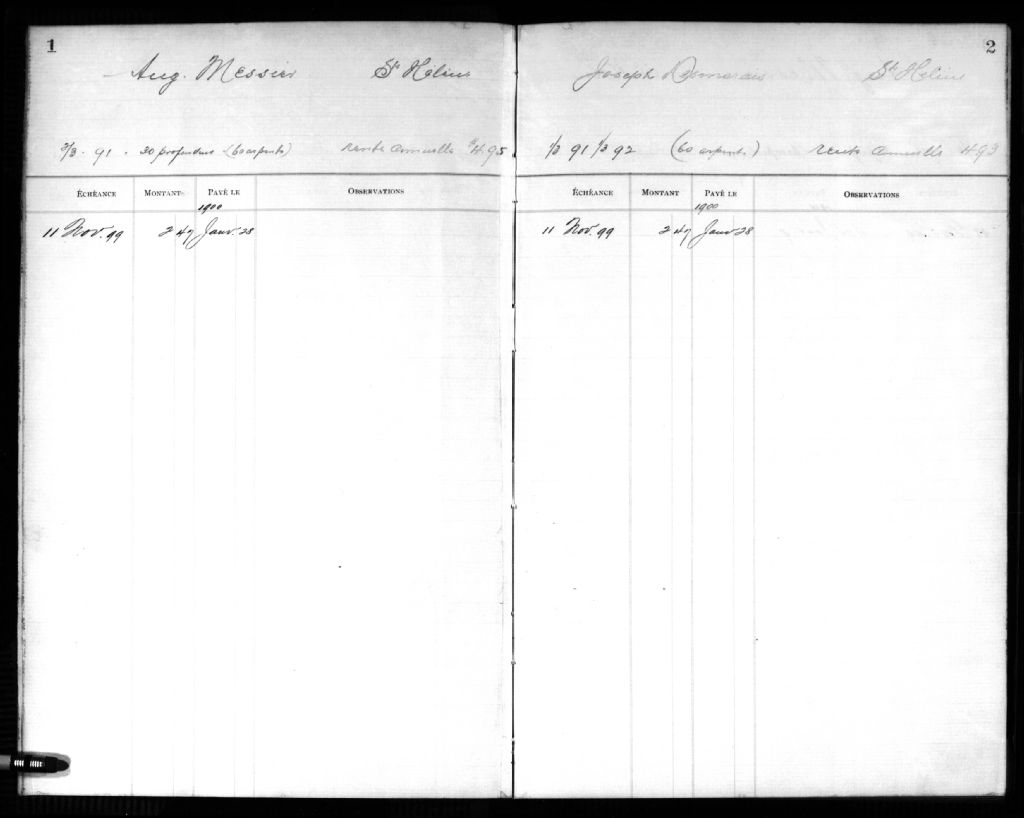 1
Aug. Messier St Hélène
2/3 . 91 . 30 profondeur (60 arpents) rente annuelle $4.95
ÉCHÉANCE MONTANT PAYÉ LE OBSERVATIONS
1900
11 Nov. 99 2 47 Janv. 28
2
Joseph Demarais St Hélène
1/3 91 1/3 92 (60 arpents) rente annuelle 4 93
ÉCHÉANCE MONTANT PAYÉ LE OBSERVATIONS
1900
11 Nov. 99 2 47 Janv 28